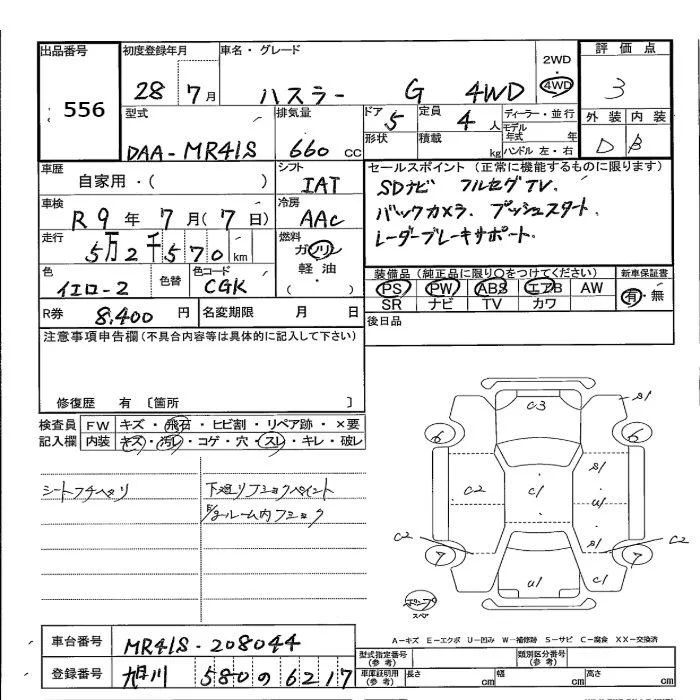 出品番号
556
初度登録年月
28年 7月
車名・グレード
ハスラー G 4WD
2WD
4WD
評価点
3
外装 内装
D B
型式
DAA-MR41S
排気量
660 cc
ドア
5
形状
定員
4人
積載
kg
ディーラー・並行
モデル年式 年
ハンドル 左・右
車歴
自家用・( )
シフト
IAT
車検
R9年7月(7日)
冷房
AAC
走行
5万2千570km
燃料
ガソリン
軽油
( ・ )
色
イエロー2
色替
色コード
CGK
R券
8,400円
名変期限 月 日
セールスポイント(正常に機能するものに限ります)
SDナビ フルセグTV.
バックカメラ. プッシュスタート.
レーダーブレーキサポート.
装備品(純正品に限り○をつけてください)
PS PW ABS エアB AW
SR ナビ TV カワ
新車保証書
有・無
後日品
注意事項申告欄(不具合内容等は具体的に記入して下さい)
修復歴 有 〔箇所 〕
検査員記入欄
FW キズ・飛石・ヒビ割・リペア跡・×要
内装 キズ・汚レ・コゲ・穴・スレ・キレ・破レ
シートフチヘリ
下廻リフショクペイント
ルーム内フショク
C3
S1
6
6
C2
C1
S1
U1
S1
C2
C2
7
7
U1
C1
スペア
A-キズ E-エクボ U-凹み W-補修跡 S-サビ C-腐食 XX-交換済
車台番号
MR41S-208044
登録番号
旭川 580 の 6217
型式指定番号(参考)
類別区分番号(参考)
車庫証明用(参考)
長さ cm
幅 cm
高さ cm